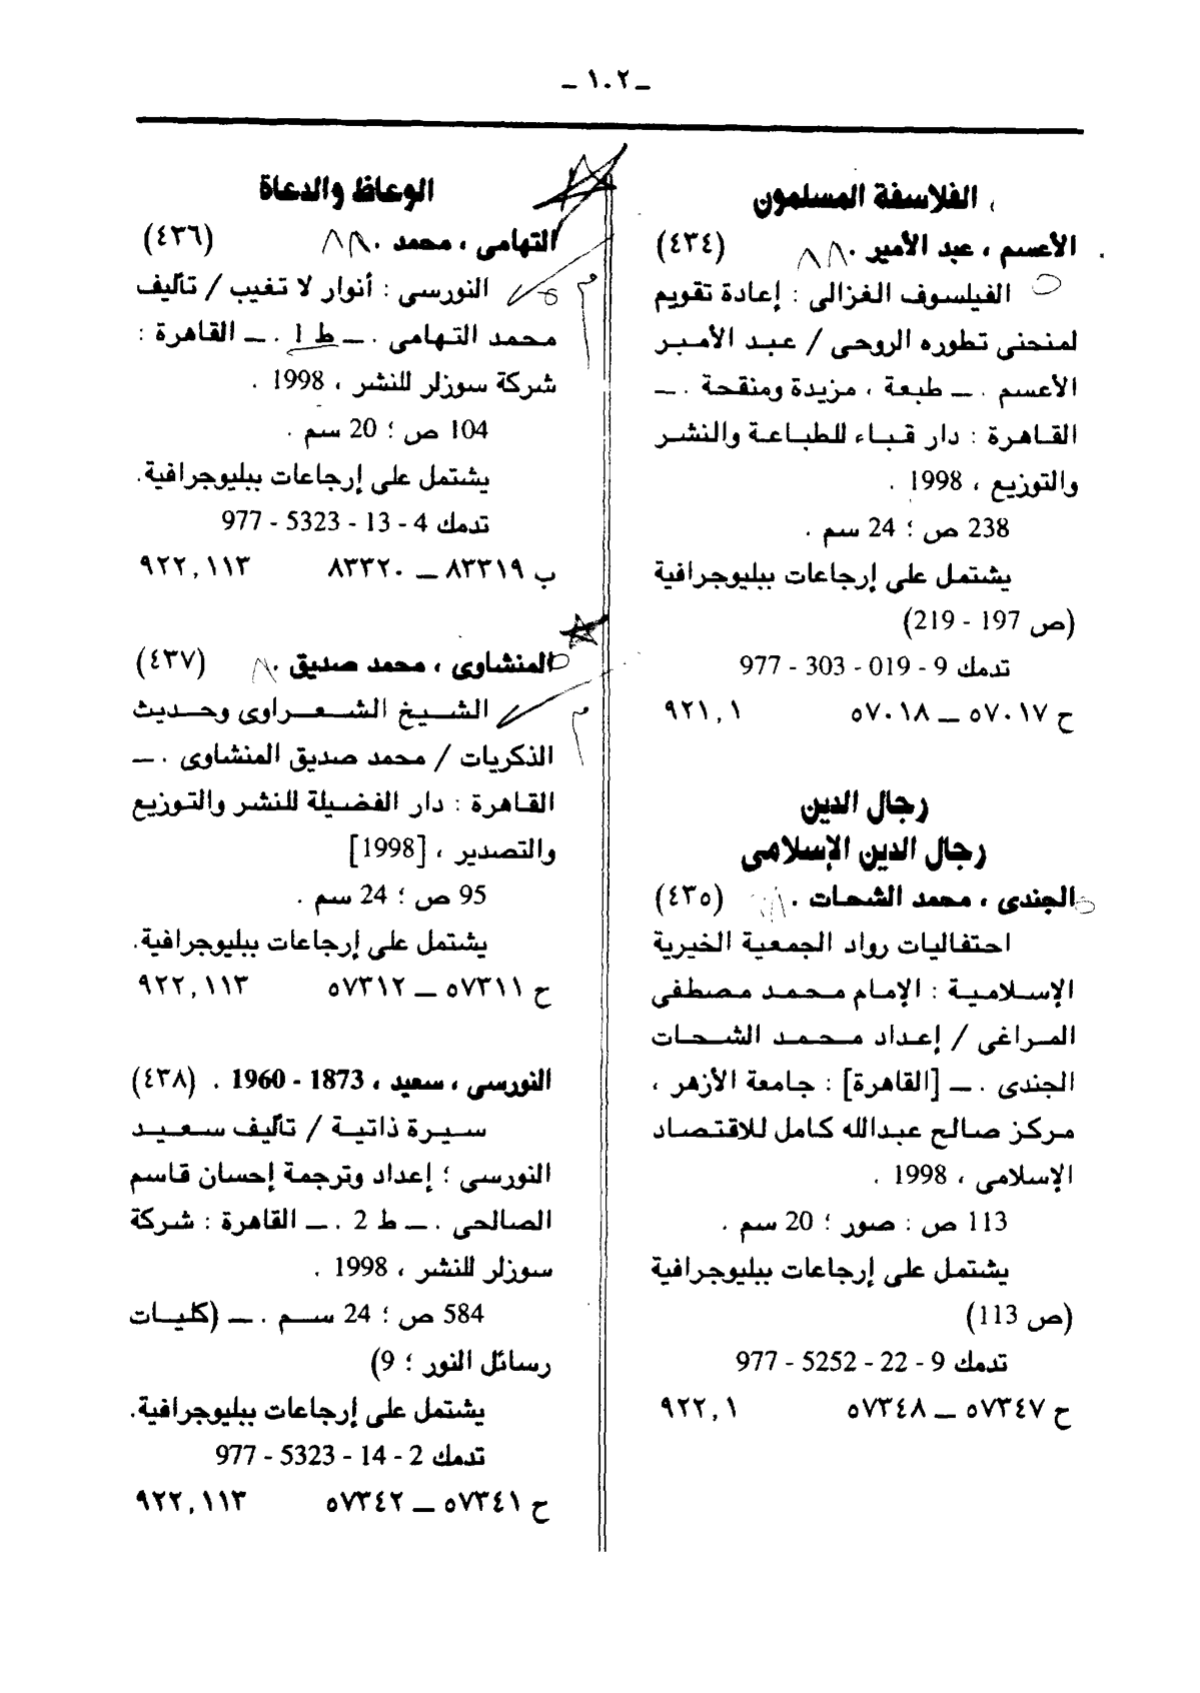 ـ ١٠٢ ـ
الفلاسفة المسلمون
الأعسم ، عبد الأمير . (٤٣٤)
الفيلسوف الغزالى : إعادة تقويم
لمنحنى تطوره الروحى / عبد الأمير
الأعسم . ــ طبعة ، مزيدة ومنقحة . ــ
القاهرة : دار قباء للطباعة والنشر
والتوزيع ، 1998 .
238 ص ؛ 24 سم .
يشتمل على إرجاعات ببليوجرافية
(ص 197 - 219)
تدمك 9 - 019 - 303 - 977
ح ٥٧٠١٧ ــ ٥٧٠١٨ ٩٢١,١
رجال الدين
رجال الدين الإسلامى
الجندى ، محمد الشحات . (٤٣٥)
احتفاليات رواد الجمعية الخيرية
الإسلامية : الإمام محمد مصطفى
المراغى / إعداد محمد الشحات
الجندى . ــ [القاهرة] : جامعة الأزهر ،
مركز صالح عبدالله كامل للاقتصاد
الإسلامى ، 1998 .
113 ص : صور ؛ 20 سم .
يشتمل على إرجاعات ببليوجرافية
(ص 113)
تدمك 9 - 22 - 5252 - 977
ح ٥٧٣٤٧ ــ ٥٧٣٤٨ ٩٢٢,١
الوعاظ والدعاة
التهامى ، محمد . (٤٣٦)
النورسى : أنوار لا تغيب / تأليف
محمد التهامى . ــ ط 1 . ــ القاهرة :
شركة سوزلر للنشر ، 1998 .
104 ص ؛ 20 سم .
يشتمل على إرجاعات ببليوجرافية.
تدمك 4 - 13 - 5323 - 977
ب ٨٣٣١٩ ــ ٨٣٣٢٠ ٩٢٢,١١٣
المنشاوى ، محمد صديق . (٤٣٧)
الشيخ الشعراوى وحديث
الذكريات / محمد صديق المنشاوى . ــ
القاهرة : دار الفضيلة للنشر والتوزيع
والتصدير ، [1998]
95 ص ؛ 24 سم .
يشتمل على إرجاعات ببليوجرافية.
ح ٥٧٣١١ ــ ٥٧٣١٢ ٩٢٢,١١٣
النورسى ، سعيد ، 1873 - 1960 . (٤٣٨)
سيرة ذاتية / تأليف سعيد
النورسى ؛ إعداد وترجمة إحسان قاسم
الصالحى . ــ ط 2 . ــ القاهرة : شركة
سوزلر للنشر ، 1998 .
584 ص ؛ 24 سم . ــ (كليات
رسائل النور ؛ 9)
يشتمل على إرجاعات ببليوجرافية.
تدمك 2 - 14 - 5323 - 977
ح ٥٧٣٤١ ــ ٥٧٣٤٢ ٩٢٢,١١٣